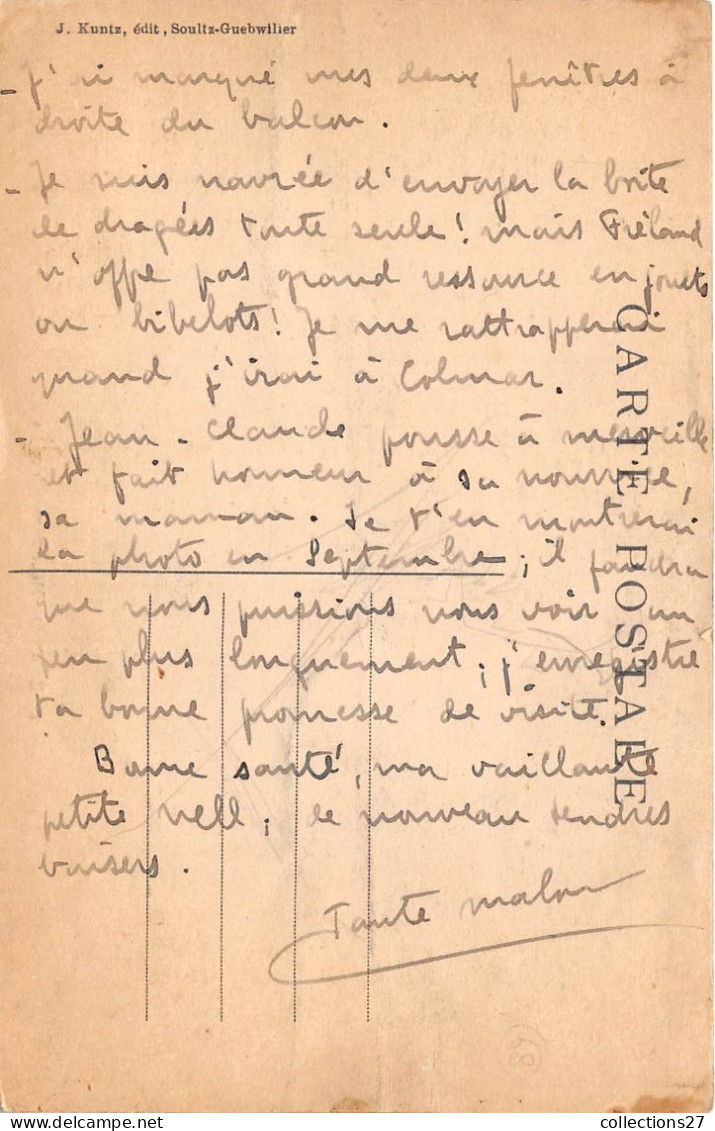 J. Kuntz, édit, Soultz-Guebwiller
- J'ai marqué mes deux fenêtres à
droite du balcon.
- Je suis navrée d'envoyer la boîte
de dragées toute seule! mais Fréland
n'offre pas grand ressource en jouets
ou bibelots! Je me rattrapperai
quand j'irai à Colmar.
- Jean-Claude pousse à merveille
et fait honneur à sa nourrice,
sa maman. Je t'en montrerai
la photo en Septembre; il faudra
que nous puissions nous voir un
peu plus longuement; j'enregistre
ta bonne promesse de visite.
Bonne santé, ma vaillante
petite Nell; de nouveau tendres
baisers.
Tante Malou
CARTE POSTALE
collections27